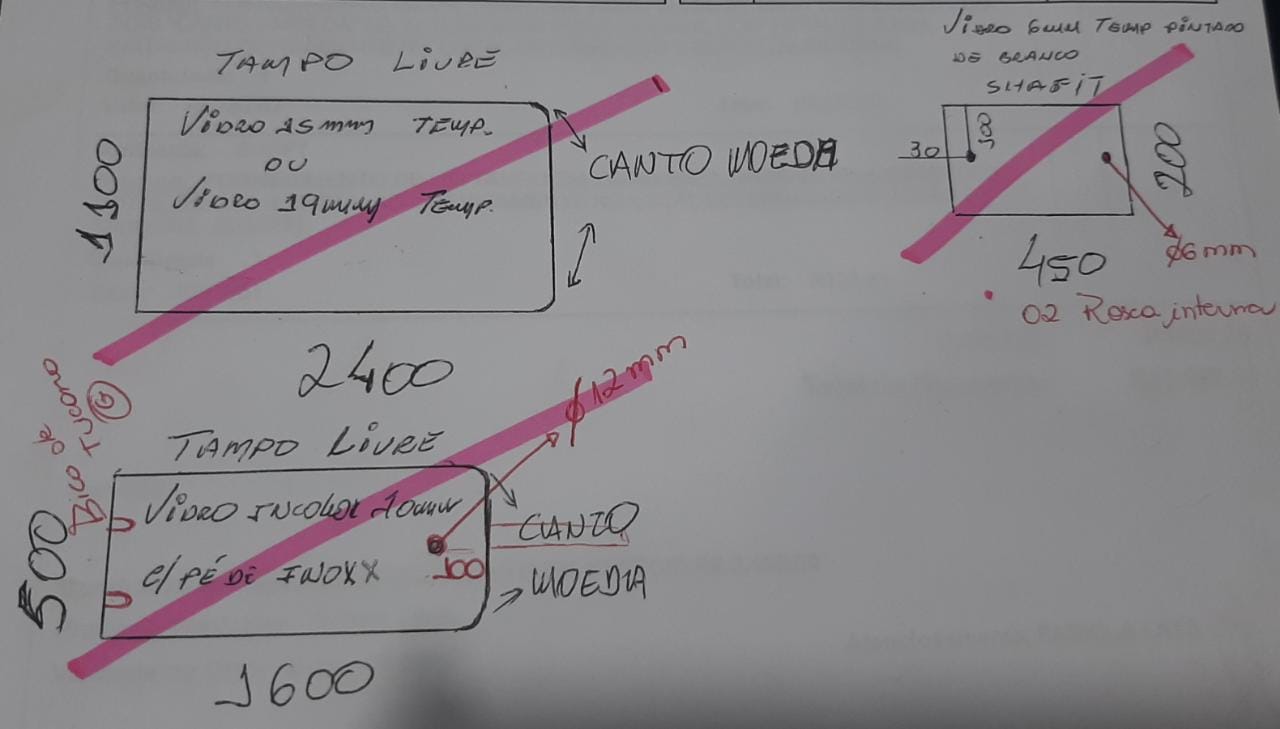 TAMPO LIVRE
VIDRO 15mm TEMP.
OU
VIDRO 19mm TEMP.
1100
2400
CANTO MOEDA
VIDRO 6mm TEMP PINTADO
DE BRANCO
SHAFIT
30
200
450
Ø6mm
02 Rosca interna
Bico de
Tucano
TAMPO LIVRE
Ø12mm
VIDRO INCOLOR 10mm
C/ PÉ DE INOXX
100
500
1600
CANTO
MOEDA